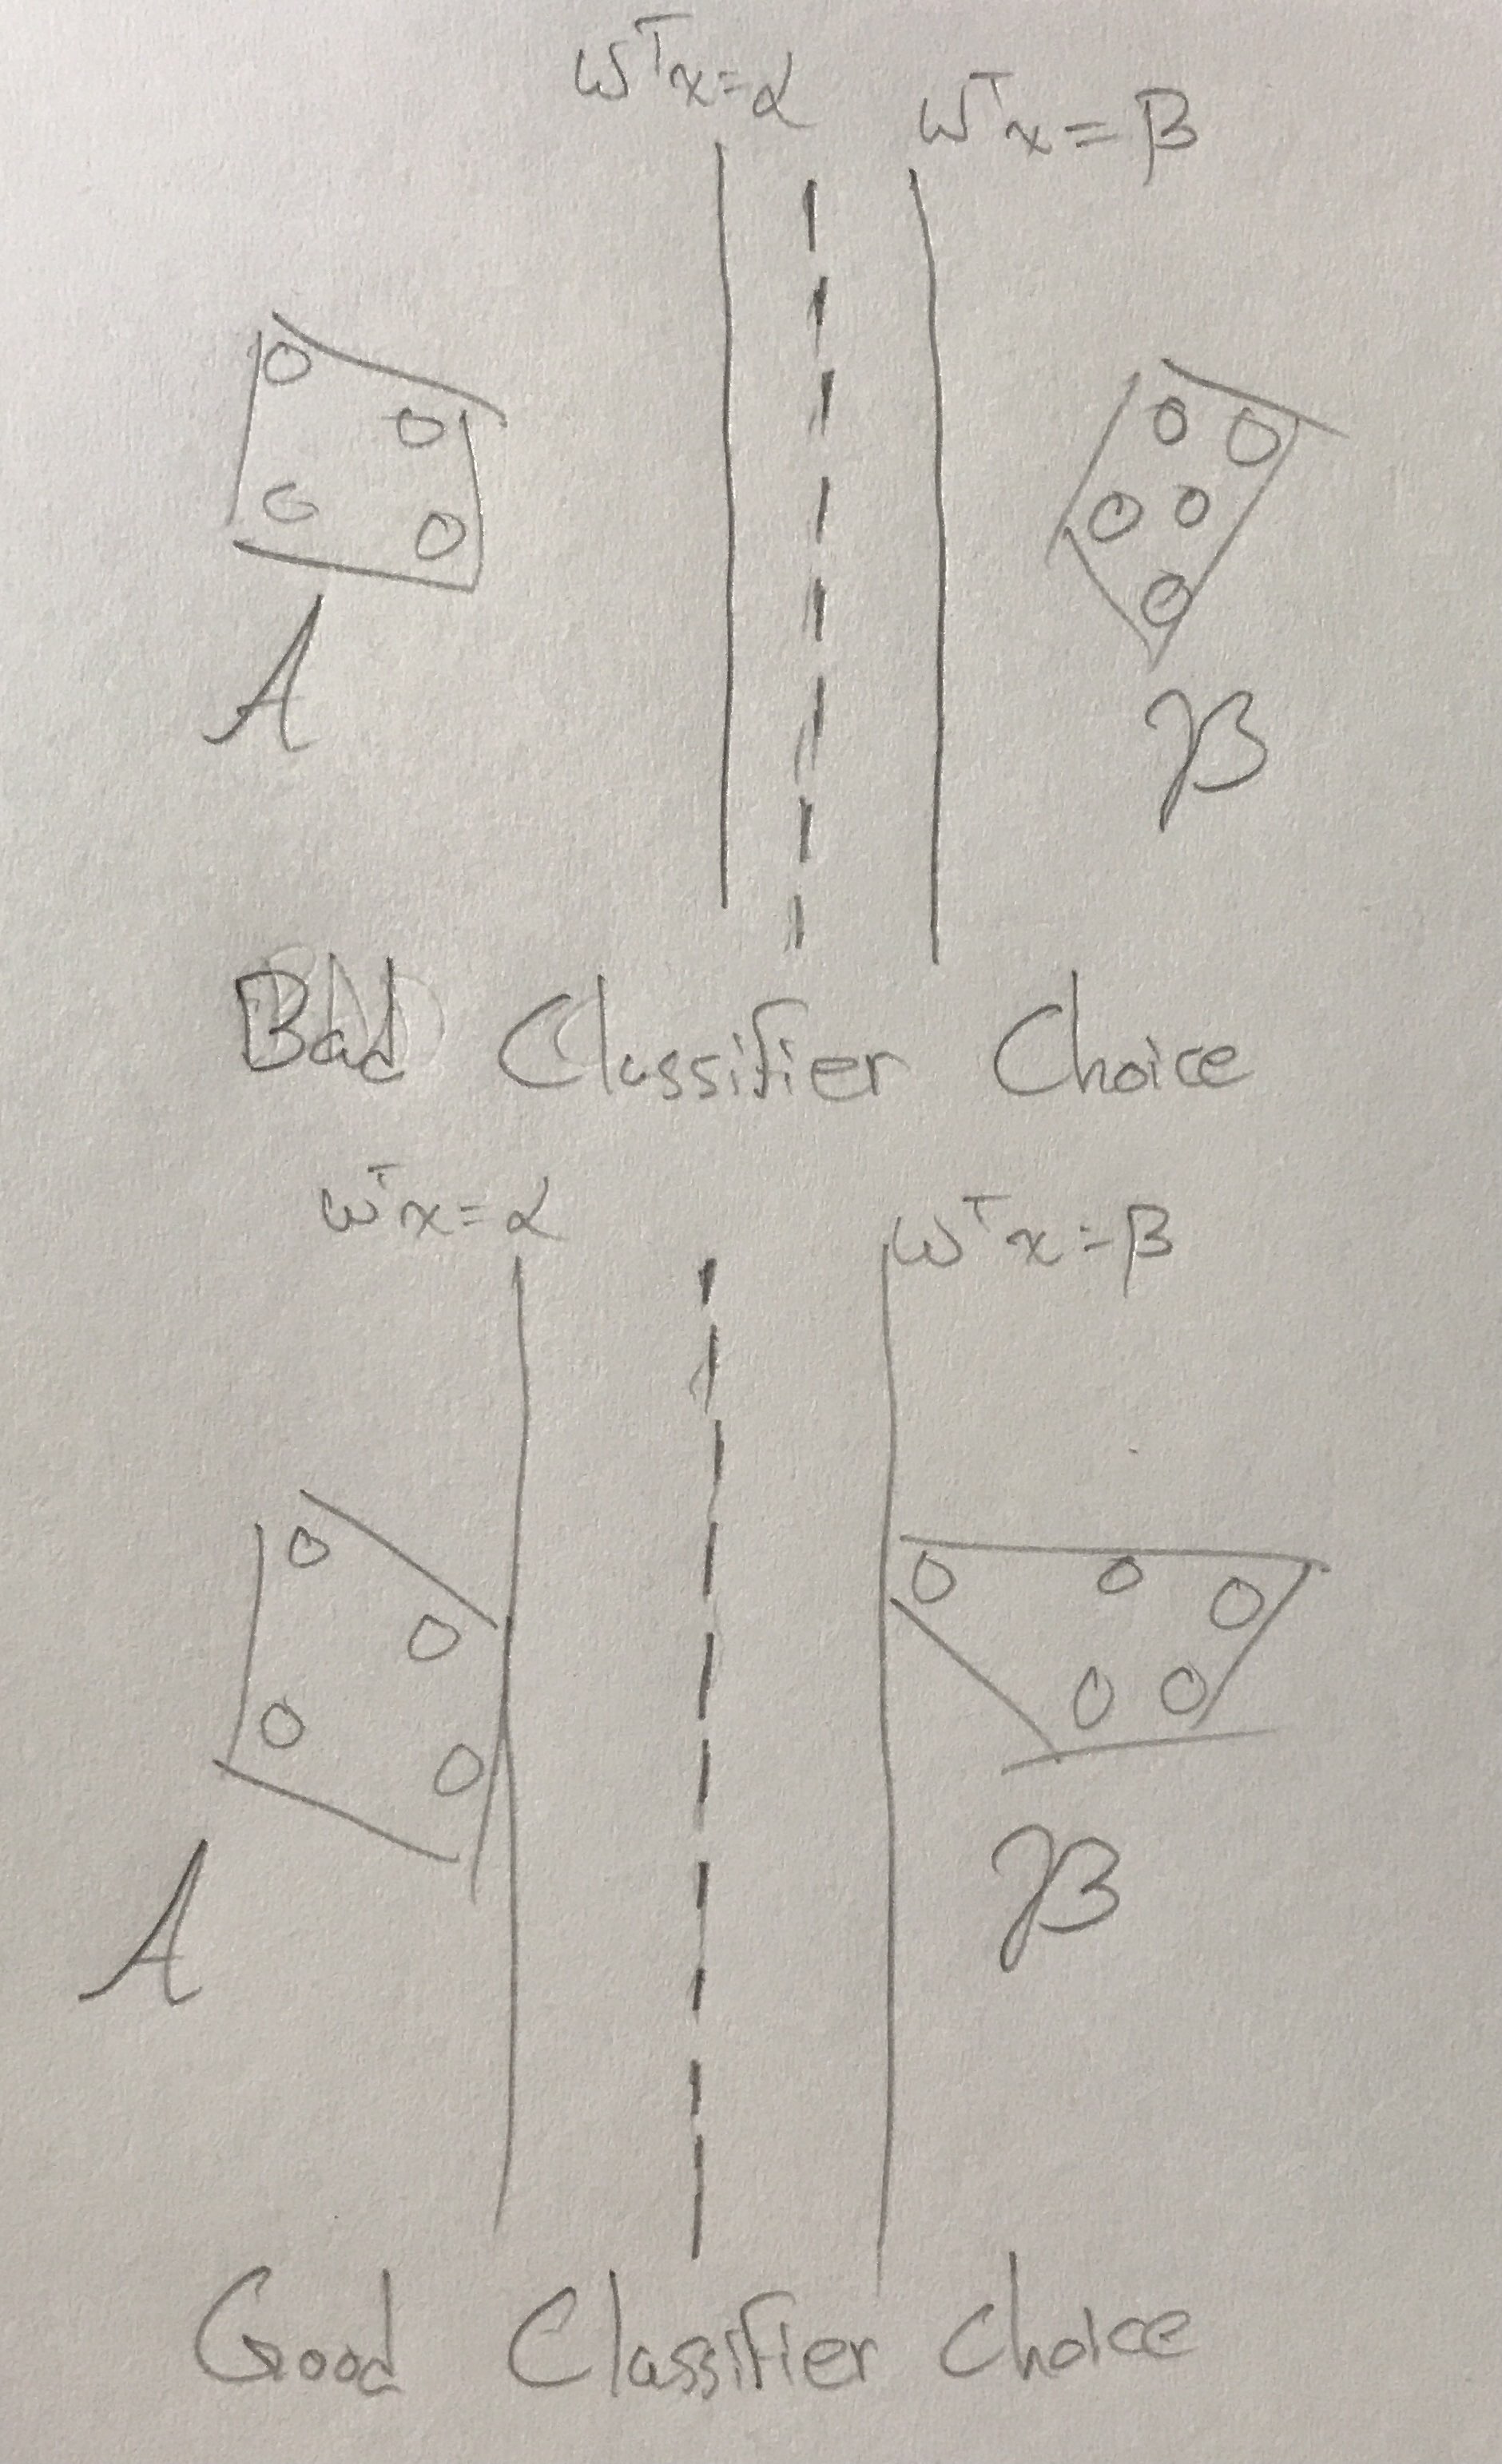 wᵀx=α
wᵀx=β
A
B
Bad Classifier Choice
wᵀx=α
wᵀx=β
A
B
Good Classifier Choice